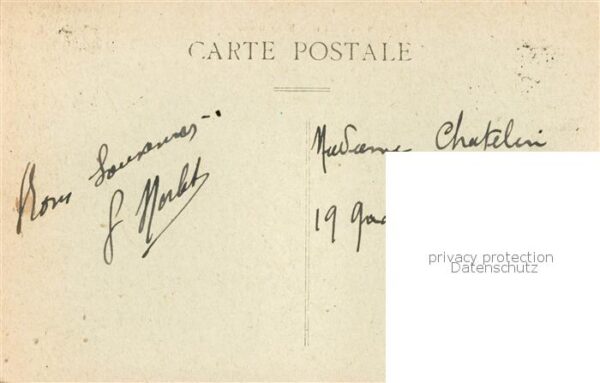 CARTE POSTALE
Bons Souvenirs
Madame Chatelin
19
privacy protection
Datenschutz